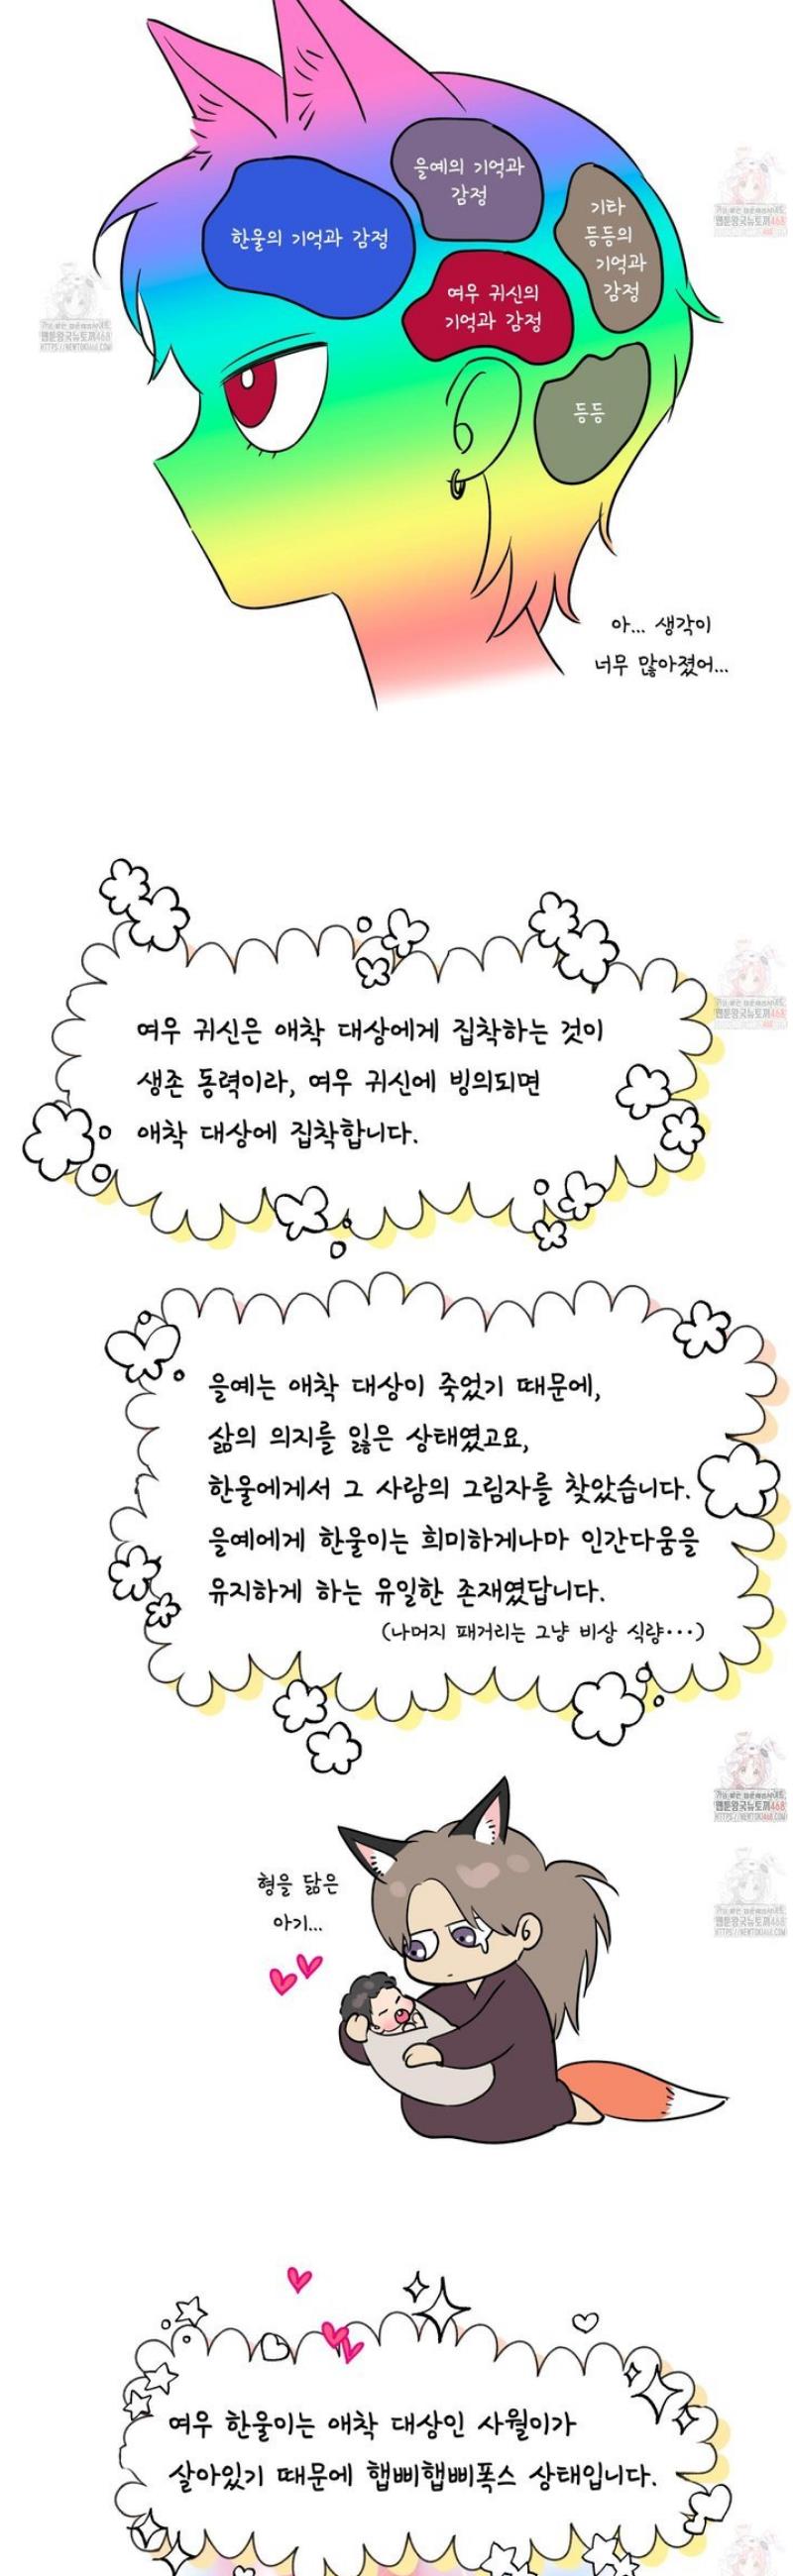 을예의 기억과
감정
한울의 기억과 감정
기타
등등의
기억과
감정
여우 귀신의
기억과 감정
등등
아... 생각이
너무 많아졌어...
여우 귀신은 애착 대상에게 집착하는 것이
생존 동력이라, 여우 귀신에 빙의되면
애착 대상에 집착합니다.
을예는 애착 대상이 죽었기 때문에,
삶의 의지를 잃은 상태였고요,
한울에게서 그 사람의 그림자를 찾았습니다.
을예에게 한울이는 희미하게나마 인간다움을
유지하게 하는 유일한 존재였답니다.
(나머지 패거리는 그냥 비상 식량···)
형을 닮은
아기...
여우 한울이는 애착 대상인 사월이가
살아있기 때문에 햅삐햅삐폭스 상태입니다.
웹툰왕국뉴토끼468
HTTPS://NEWTOKI468.COM